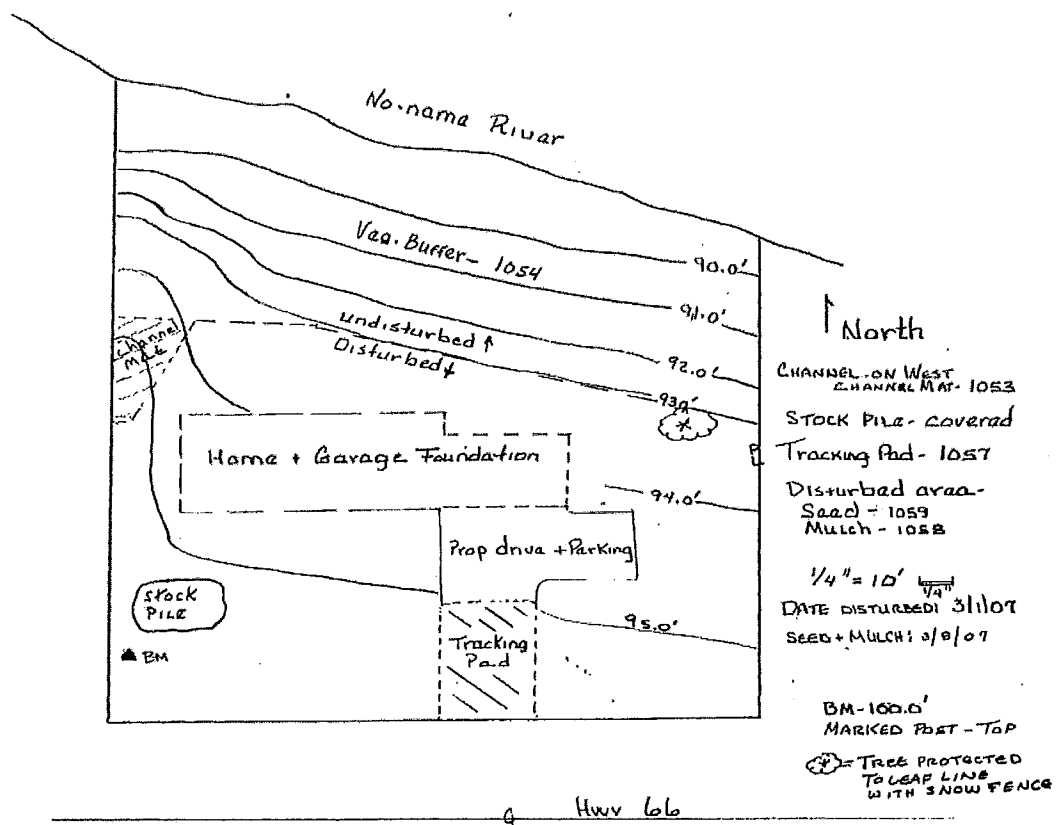 No-name River
Veg. Buffer- 1054
90.0'
91.0'
92.0'
93.0'
undisturbed ↑
Disturbed ↓
Channel
Mat
Home + Garage Foundation
94.0'
Prop drive + Parking
STOCK
PILE
BM
Tracking
Pad
95.0'
North
CHANNEL-ON WEST
CHANNEL MAT- 1053
STOCK PILE- covered
Tracking Pad- 1057
Disturbed area-
Seed - 1059
Mulch - 1058
1/4" = 10'
1/4"
DATE DISTURBED: 3/1/07
SEED + MULCH: 3/8/07
BM-100.0'
MARKED POST - TOP
= TREE PROTECTED
TO LEAF LINE
WITH SNOW FENCE
Hwy 66